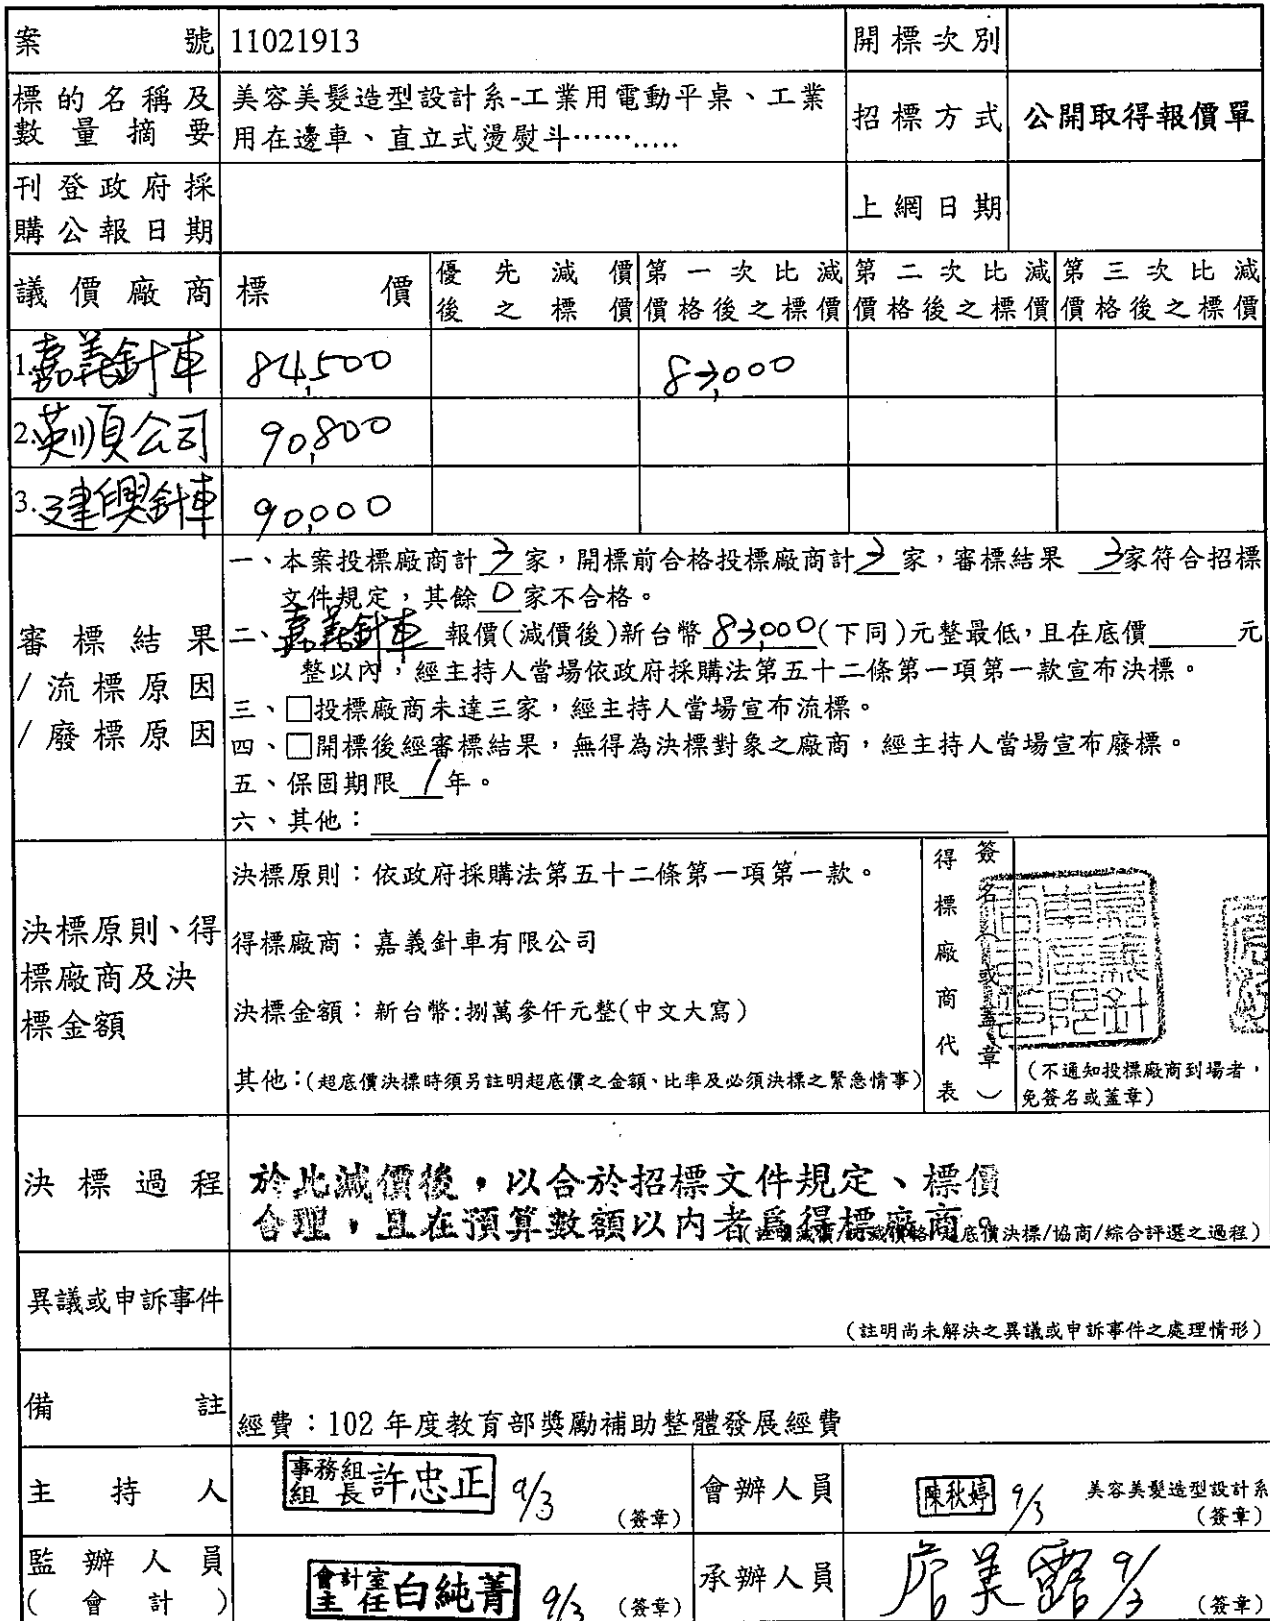 案 號 11021913 開標次別
標的名稱及數量摘要 美容美髮造型設計系-工業用電動平桌、工業
用在邊車、直立式燙熨斗……..... 招標方式 公開取得報價單
刊登政府採購公報日期 上網日期
議價廠商 標 價 優先減價後之標價 第一次比減價格後之標價 第二次比減價格後之標價 第三次比減價格後之標價
1.嘉義針車 84,500 83,000
2.英順公司 90,800
3.建興針車 90,000
審標結果
/流標原因
/廢標原因
一、本案投標廠商計 3 家,開標前合格投標廠商計 3 家,審標結果 3家符合招標
文件規定,其餘 0 家不合格。
二、嘉義針車 報價(減價後)新台幣 83,000(下同)元整最低,且在底價______元
整以內,經主持人當場依政府採購法第五十二條第一項第一款宣布決標。
三、□投標廠商未達三家,經主持人當場宣布流標。
四、□開標後經審標結果,無得為決標對象之廠商,經主持人當場宣布廢標。
五、保固期限 1 年。
六、其他:
決標原則、得
標廠商及決
標金額
決標原則:依政府採購法第五十二條第一項第一款。
得標廠商:嘉義針車有限公司
決標金額:新台幣:捌萬參仟元整(中文大寫)
其他:(超底價決標時須另註明超底價之金額、比率及必須決標之緊急情事)
得標廠商代表
簽名(或蓋章)
(不通知投標廠商到場者,
免簽名或蓋章)
決標過程 於比減價後,以合於招標文件規定、標價
合理,且在預算數額以內者為得標廠商。
底價決標/協商/綜合評選之過程)
異議或申訴事件
(註明尚未解決之異議或申訴事件之處理情形)
備 註 經費:102 年度教育部獎勵補助整體發展經費
主持人 事務組組長 許忠正 9/3 (簽章) 會辦人員 陳秋婷 9/3 美容美髮造型設計系
(簽章)
監辦人員
(會計) 會計室主任 白純菁 9/3 (簽章) 承辦人員 9/3 (簽章)